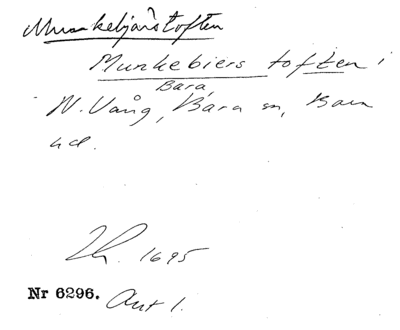 Munkebjärstoften
Munkebiers toften i
Bara,
N. Vång, Bara sn, Bara
hd.
Lh. 1695
Nr 6296. Avt 1.